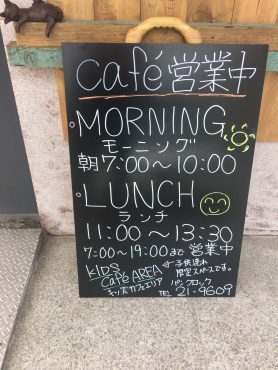 café 営業中
MORNING
モーニング
朝7:00〜10:00
LUNCH
ランチ
11:00〜13:30
7:00〜19:00まで 営業中
KIDS ← 子供連れ
Café AREA 限定スペースです。
キッズカフェエリア パンブロック
TEL 21-9609